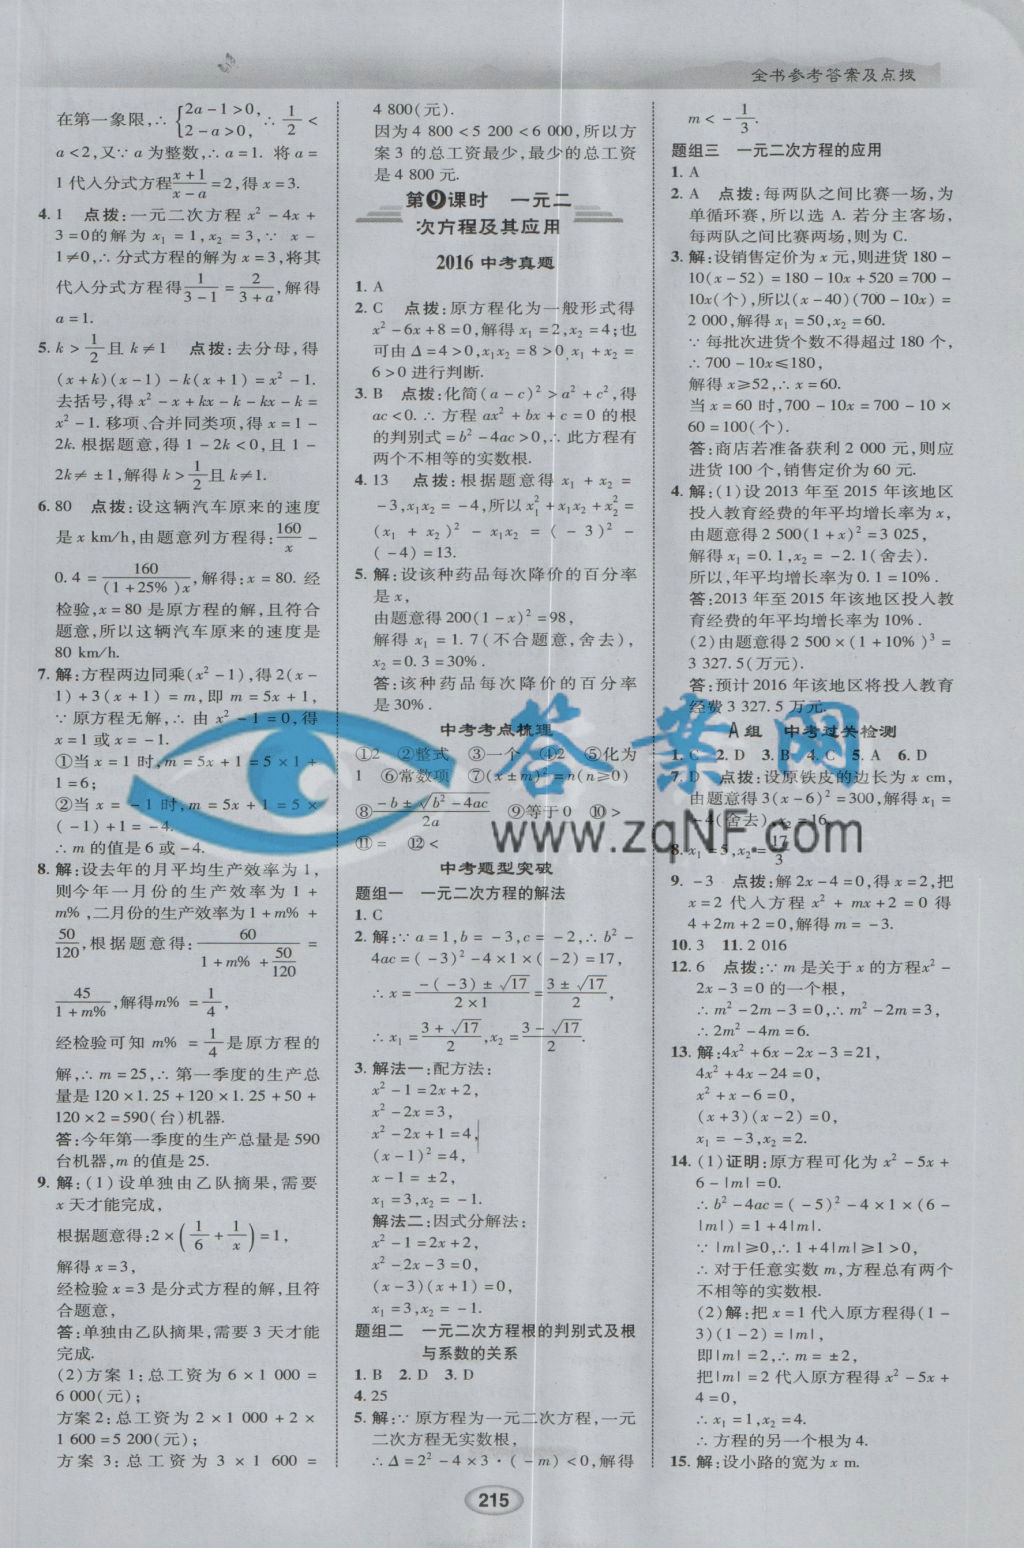 全书参考答案及点拨
在第一象限,∴{2a-1>0, 2-a>0, ∴1/2<
a<2,又∵a为整数,∴a=1. 将a=
1代入分式方程(x+1)/(x-a)=2,得x=3.
4. 1 点拨:一元二次方程x²-4x+
3=0的解为x₁=1,x₂=3,∵x-
1≠0,∴分式方程的解为x=3,将其
代入分式方程得1/(3-1)=2/(3+a),解得
a=1.
5. k>1/2且k≠1 点拨:去分母,得
(x+k)(x-1)-k(x+1)=x²-1.
去括号,得x²-x+kx-k-kx-k=
x²-1.移项、合并同类项,得x=1-
2k.根据题意,得1-2k<0,且1-
2k≠±1,解得k>1/2且k≠1.
6. 80 点拨:设这辆汽车原来的速度
是x km/h,由题意列方程得:160/x-
0.4=160/((1+25%)x),解得:x=80. 经
检验,x=80是原方程的解,且符合
题意,所以这辆汽车原来的速度是
80 km/h.
7. 解:方程两边同乘(x²-1),得2(x-
1)+3(x+1)=m,即m=5x+1,
∵原方程无解,∴由x²-1=0,得
x=1或x=-1.
①当x=1时,m=5x+1=5×1+
1=6;
②当x=-1时,m=5x+1=5×
(-1)+1=-4.
∴m的值是6或-4.
8. 解:设去年的月平均生产效率为1,
则今年一月份的生产效率为1+
m%,二月份的生产效率为1+m%+
50/120,根据题意得:60/(1+m%+50/120)=
45/(1+m%),解得m%=1/4,
经检验可知m%=1/4是原方程的
解,∴m=25,∴第一季度的生产总
量是120×1.25+120×1.25+50+
120×2=590(台)机器.
答:今年第一季度的生产总量是590
台机器,m的值是25.
9. 解:(1)设单独由乙队摘果,需要
x天才能完成,
根据题意得:2×(1/6+1/x)=1,
解得x=3,
经检验x=3是分式方程的解,且符
合题意,
答:单独由乙队摘果,需要3天才能
完成.
(2)方案1:总工资为6×1 000=
6 000(元);
方案2:总工资为2×1 000+2×
1 600=5 200(元);
方案3:总工资为3×1 600=
4 800(元).
因为4 800<5 200<6 000,所以方
案3的总工资最少,最少的总工资
是4 800元.
第9课时 一元二
次方程及其应用
2016中考真题
1. A
2. C 点拨:原方程化为一般形式得
x²-6x+8=0,解得x₁=2,x₂=4;也
可由Δ=4>0,x₁x₂=8>0,x₁+x₂=
6>0进行判断.
3. B 点拨:化简(a-c)²>a²+c²,得
ac<0.∴方程ax²+bx+c=0的根
的判别式=b²-4ac>0,∴此方程有
两个不相等的实数根.
4. 13 点拨:根据题意得x₁+x₂=
-3,x₁x₂=-4,所以x₁²+x₁x₂+x₂²=
(x₁+x₂)²-x₁x₂=(-3)²-
(-4)=13.
5. 解:设该种药品每次降价的百分率
是x,
由题意得200(1-x)²=98,
解得x₁=1.7(不合题意,舍去),
x₂=0.3=30%.
答:该种药品每次降价的百分率
是30%.
中考考点梳理
①2 ②整式 ③一个 ④2 ⑤化为
1 ⑥常数项 ⑦(x±m)²=n(n≥0)
⑧(-b±√(b²-4ac))/2a ⑨等于0 ⑩>
⑪= ⑫<
中考题型突破
题组一 一元二次方程的解法
1. C
2. 解:∵a=1,b=-3,c=-2,∴b²-
4ac=(-3)²-4×1×(-2)=17,
∴x=(-(-3)±√17)/(2×1)=(3±√17)/2,
∴x₁=(3+√17)/2,x₂=(3-√17)/2.
3. 解法一:配方法:
x²-1=2x+2,
x²-2x=3,
x²-2x+1=4,
(x-1)²=4,
x-1=±2,
x₁=3,x₂=-1.
解法二:因式分解法:
x²-1=2x+2,
x²-2x-3=0,
(x-3)(x+1)=0,
x₁=3,x₂=-1.
题组二 一元二次方程根的判别式及根
与系数的关系
1. B 2. D 3. D
4. 25
5. 解:∵原方程为一元二次方程,一元
二次方程无实数根,
∴Δ=2²-4×3·(-m)<0,解得
m<-1/3.
题组三 一元二次方程的应用
1. A
2. A 点拨:每两队之间比赛一场,为
单循环赛,所以选A.若分主客场,
每两队之间比赛两场,则为C.
3. 解:设销售定价为x元,则进货180-
10(x-52)=180-10x+520=700-
10x(个),所以(x-40)(700-10x)=
2 000,解得x₁=50,x₂=60.
∵每批次进货个数不得超过180个,
∴700-10x≤180,
解得x≥52,∴x=60.
当x=60时,700-10x=700-10×
60=100(个).
答:商店若准备获利2 000元,则应
进货100个,销售定价为60元.
4. 解:(1)设2013年至2015年该地区
投入教育经费的年平均增长率为x,
由题意得2 500(1+x)²=3 025,
解得x₁=0.1,x₂=-2.1(舍去).
所以,年平均增长率为0.1=10%.
答:2013年至2015年该地区投入教
育经费的年平均增长率为10%.
(2)由题意得2 500×(1+10%)³=
3 327.5(万元).
答:预计2016年该地区将投入教育
经费3 327.5万元.
A组 中考过关检测
1. C 2. D 3. B 4. C 5. A 6. D
7. D 点拨:设原铁皮的边长为x cm,
由题意得3(x-6)²=300,解得x₁=
-4(舍去),x₂=16.
8. x₁=5,x₂=17/3
9. -3 点拨:解2x-4=0,得x=2,把
x=2代入方程x²+mx+2=0得
4+2m+2=0,解得m=-3.
10. 3 11. 2 016
12. 6 点拨:∵m是关于x的方程x²-
2x-3=0的一个根,
∴m²-2m-3=0,∴m²-2m=3,
∴2m²-4m=6.
13. 解:4x²+6x-2x-3=21,
4x²+4x-24=0,
x²+x-6=0,
(x+3)(x-2)=0,
x₁=-3,x₂=2.
14. (1)证明:原方程可化为x²-5x+
6-|m|=0.
∴b²-4ac=(-5)²-4×1×(6-
|m|)=1+4|m|.
∵|m|≥0,∴1+4|m|≥1>0,
∴对于任意实数m,方程总有两个
不相等的实数根.
(2)解:把x=1代入原方程得(1-
3)(1-2)=|m|,
即|m|=2,∴m=±2,
把|m|=2代入原方程得x²-5x+
4=0,
∴x₁=1,x₂=4.
∴方程的另一个根为4.
15. 解:设小路的宽为x m.
215
答案网
www.zqNF.com